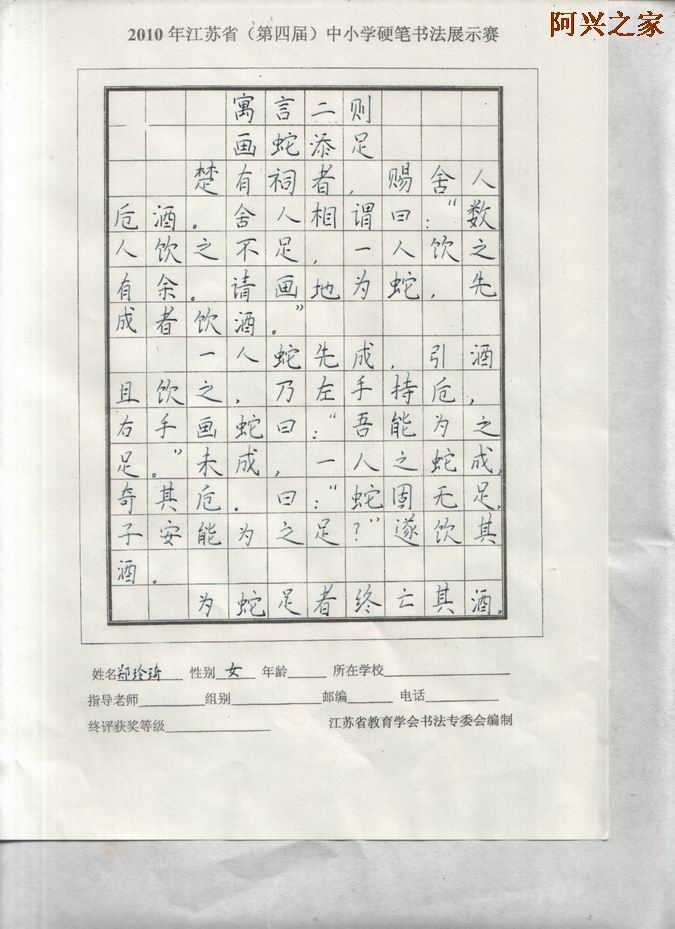 阿兴之家
2010年江苏省（第四届）中小学硬笔书法展示赛
寓言二则
画蛇添足
楚有祠者，赐舍人
卮酒。舍人相谓曰：“数
人饮之不足，一人饮之
有余。请画地为蛇，先
成者饮酒。”
一人蛇先成，引酒
且饮之，乃左手持卮，
右手画蛇曰：“吾能为之
足。”未成，一人之蛇成，
奇其卮．曰：“蛇固无足，
子安能为之足？”遂饮其
酒．
为蛇足者终亡其酒．
姓名 性别女 年龄 所在学校
指导老师 组别 邮编 电话
终评获奖等级 江苏省教育学会书法专委会编制